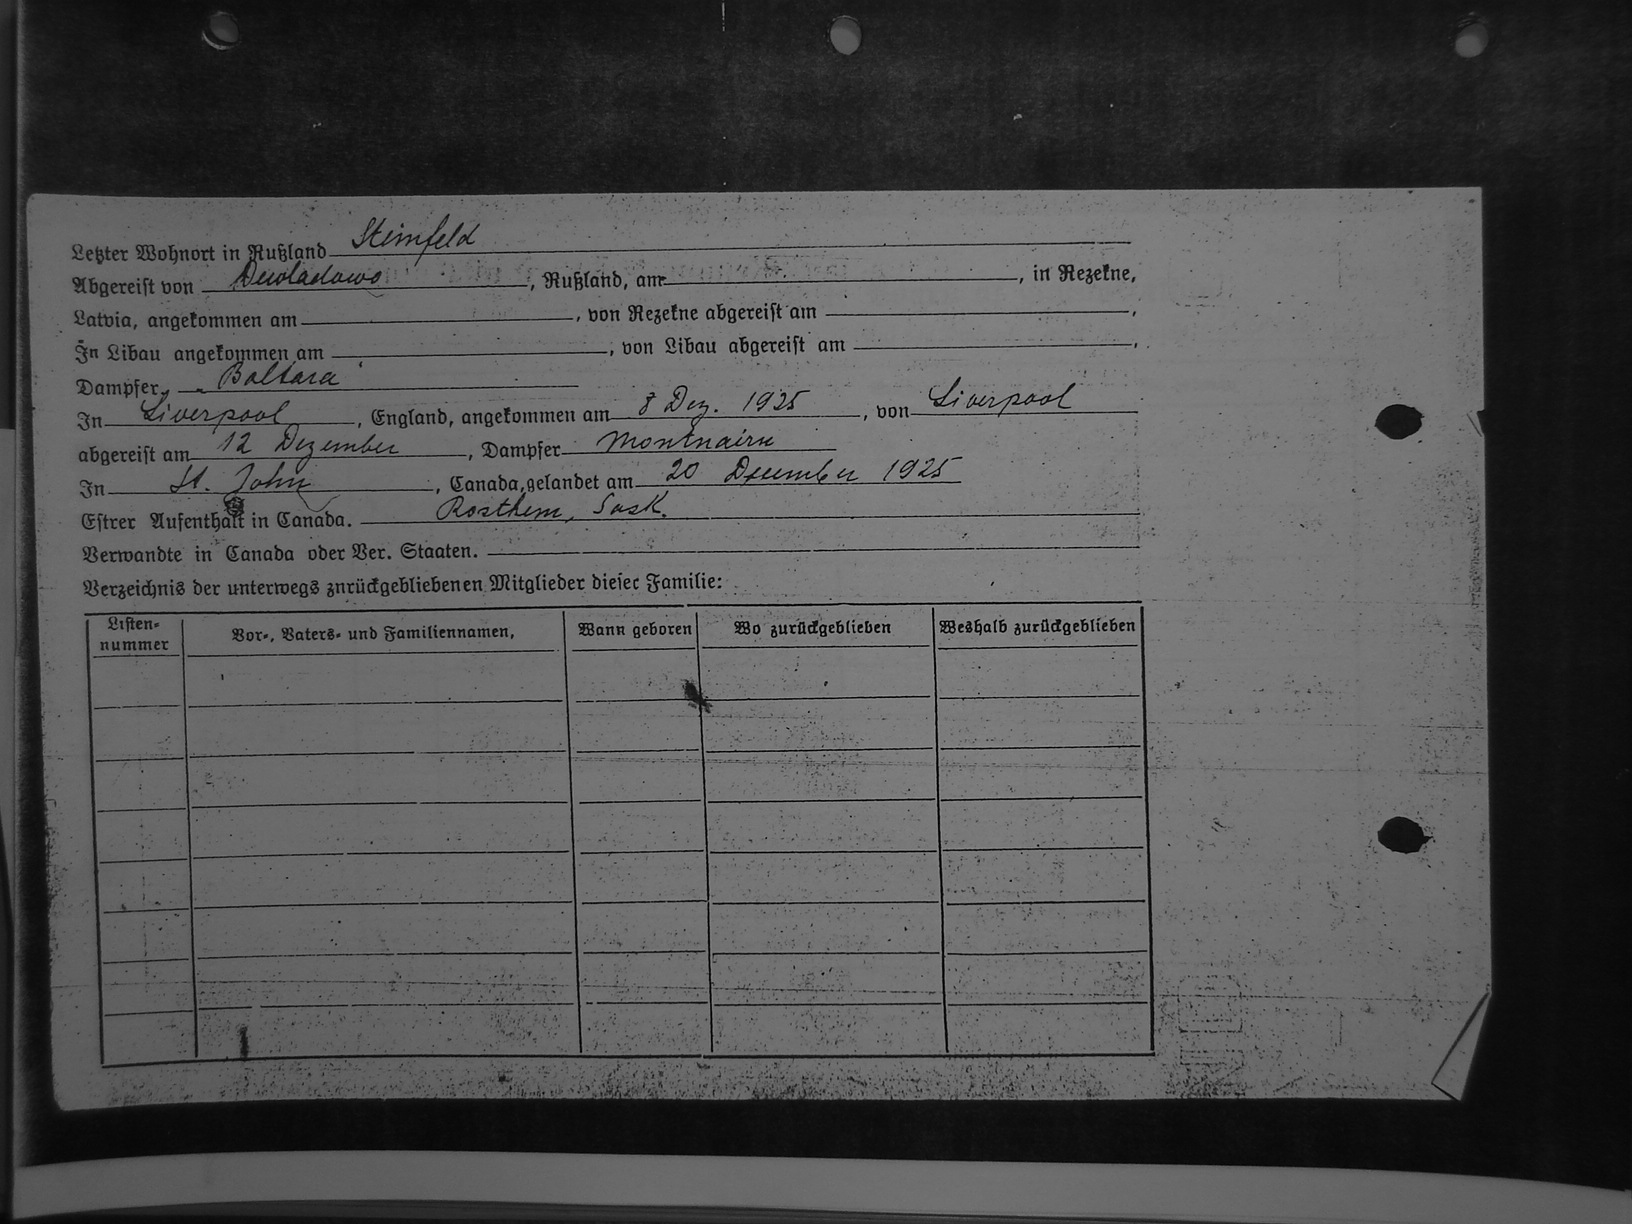 Letzter Wohnort in Rußland Steinfeld
Abgereist von Dewladowo, Rußland, am, in Rezekne,
Latvia, angekommen am, von Rezekne abgereist am,
In Libau angekommen am, von Libau abgereist am,
Dampfer, „Baltara"
In Liverpool, England, angekommen am 8 Dez. 1925, von Liverpool
abgereist am 12 Dezember, Dampfer Montnairn
In St. John, Canada, gelandet am 20 Dezember 1925
Estrer Aufenthalt in Canada. Rosthern, Sask.
Verwandte in Canada oder Ver. Staaten.
Verzeichnis der unterwegs znrückgebliebenen Mitglieder diesec Familie:
Listen-nummer Vor-, Vaters- und Familiennamen, Wann geboren Wo zurückgeblieben Weshalb zurückgeblieben